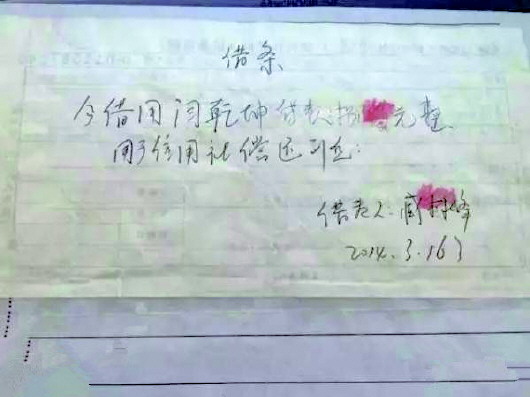 借条
今借用闫乾坤借款 元整
用于信用社偿还利息:
借款人: 峰
2014.3.16日